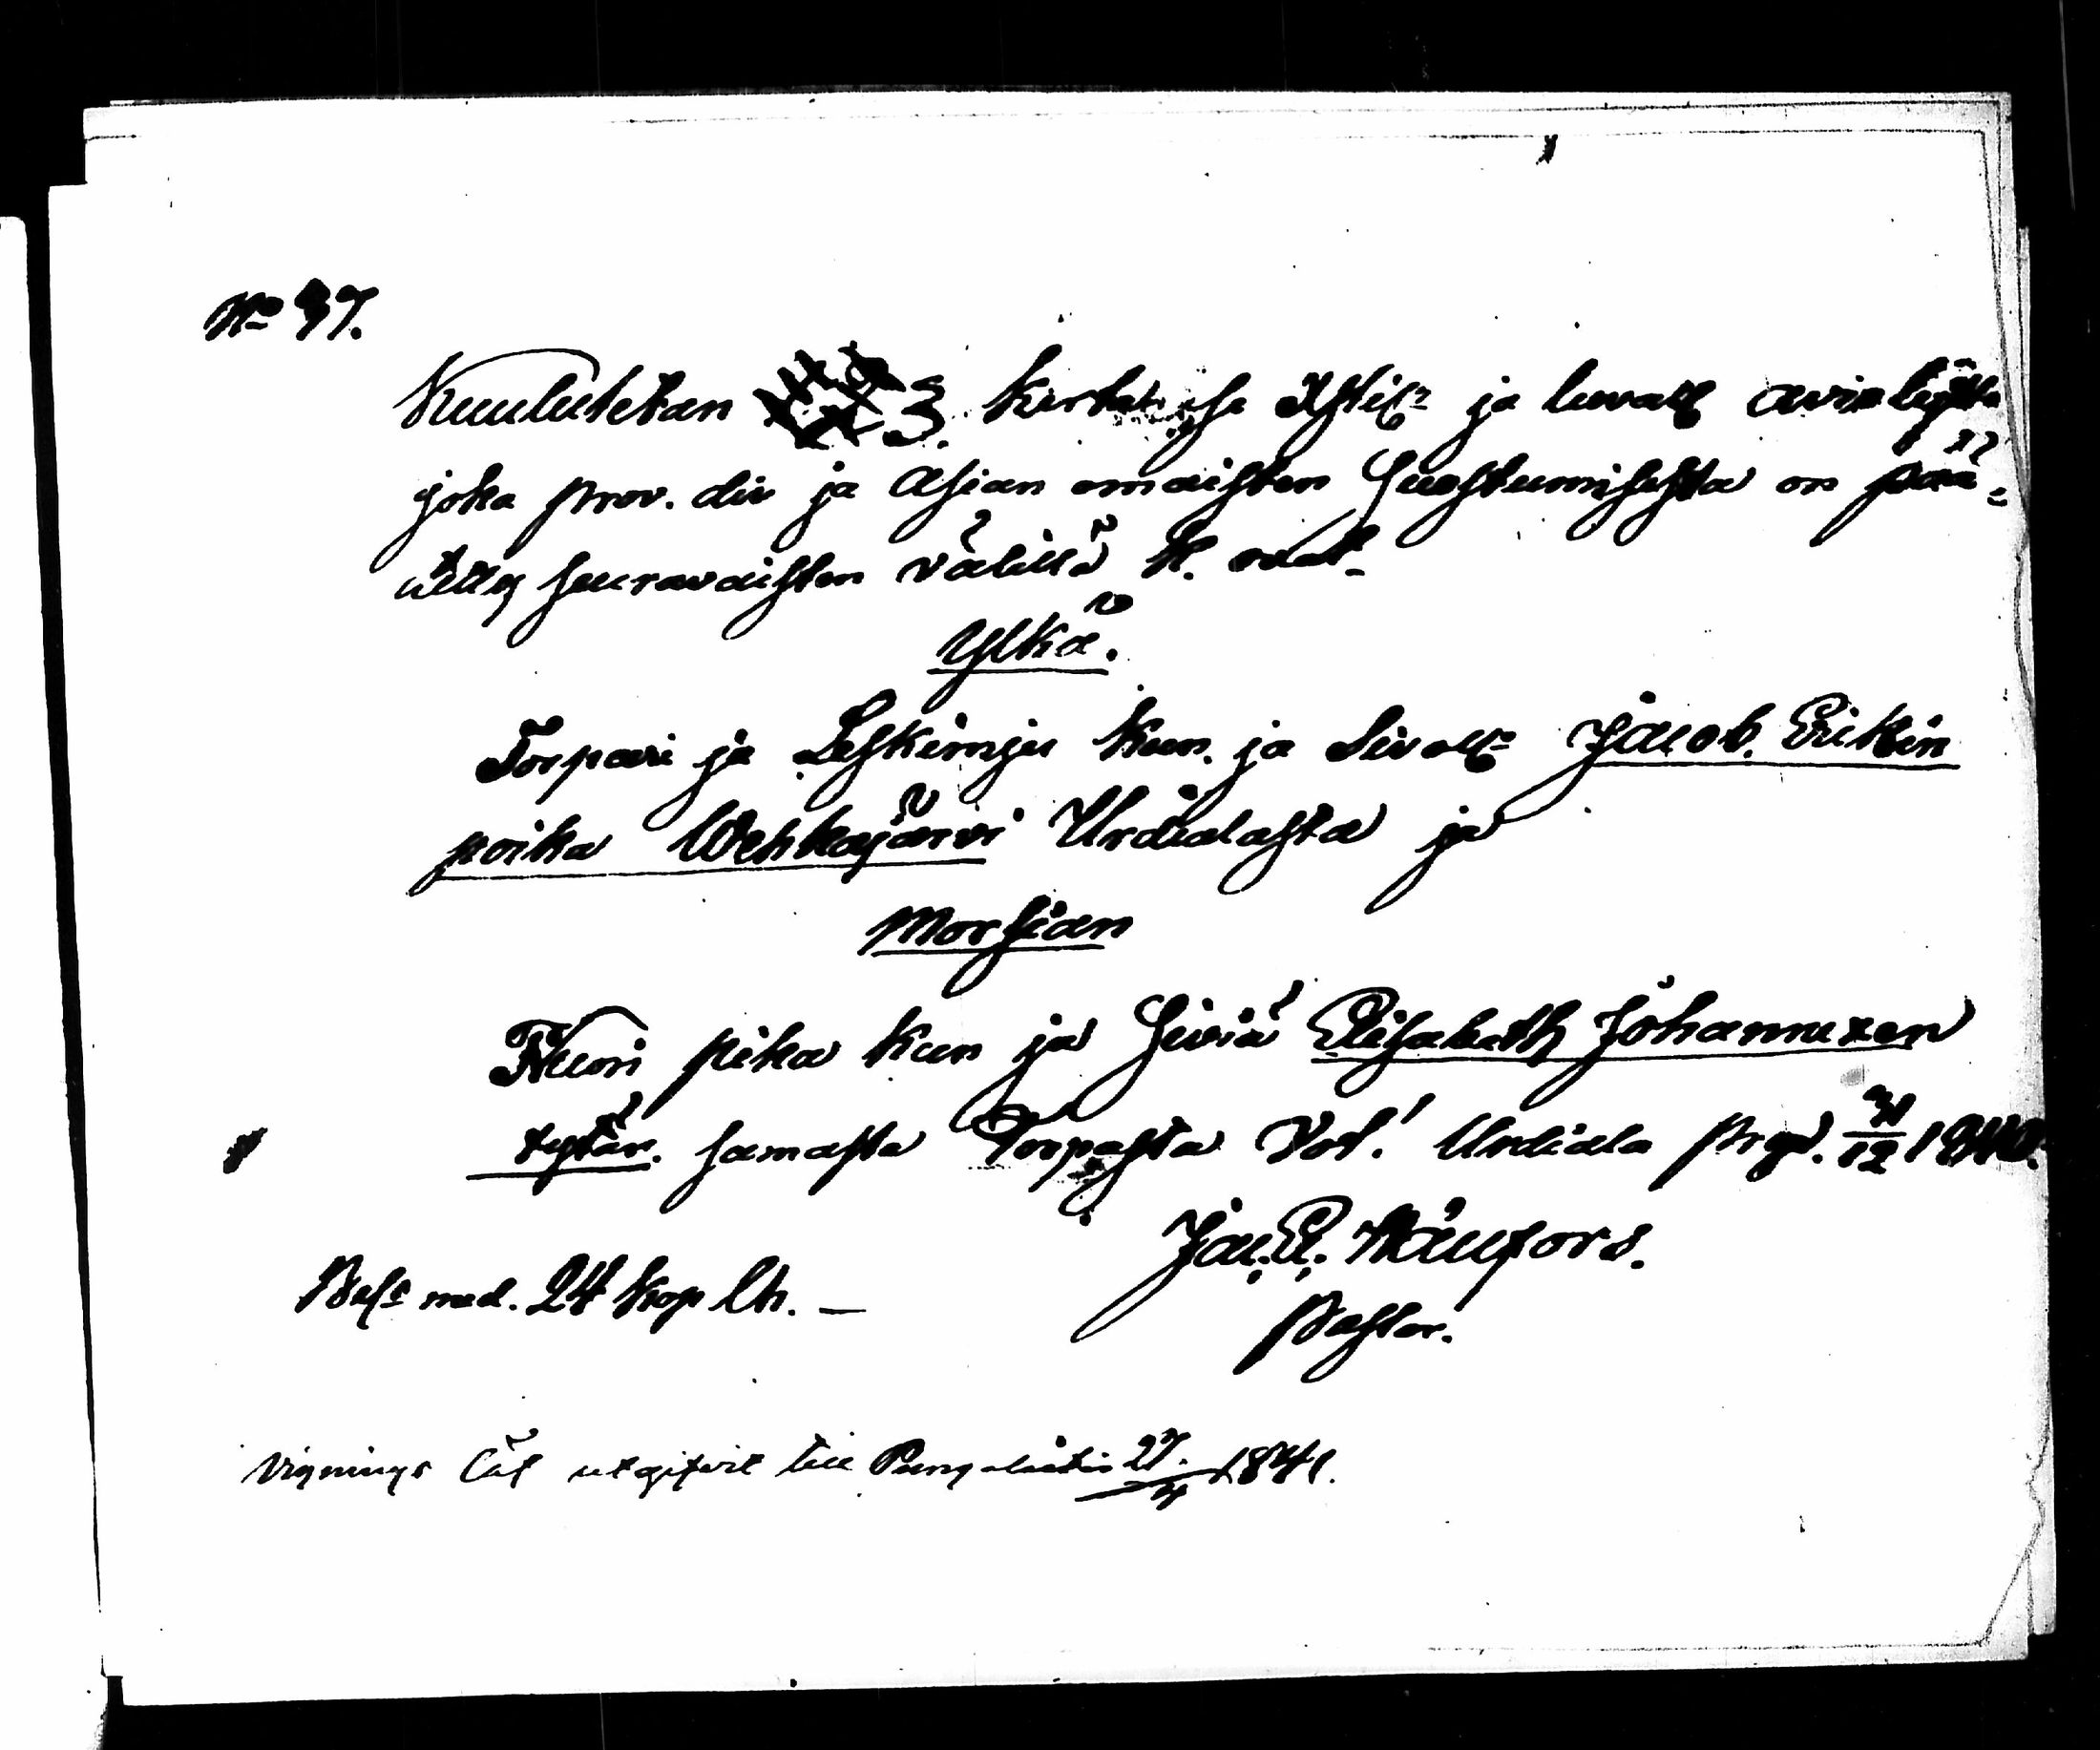 No 37.
Kuulutetan 3. kerta se Xstil: ja luvall. avioliitto
joka prov. div ja asian omaisten suostumisesta on pää-
tetty seuravaisten välillä N. ovat
Ylkä.
Torpari ja Leskimjes kun. ja Siv oll: Jacob. Erikin
poika Wehkajärvi Urdialasta ja
Morsian
Nuori pika kun ja Siviä Elisabeth Johannexen
tytär. samasta Torpasta Vol. Urdiala Prgd. 31/12 1840.
Jac. E. Hällfors.
Pastor.
Bes: med. 24 kop lh. —
Vignings Cat utgifvit till Pungalaitio 27. 1841.